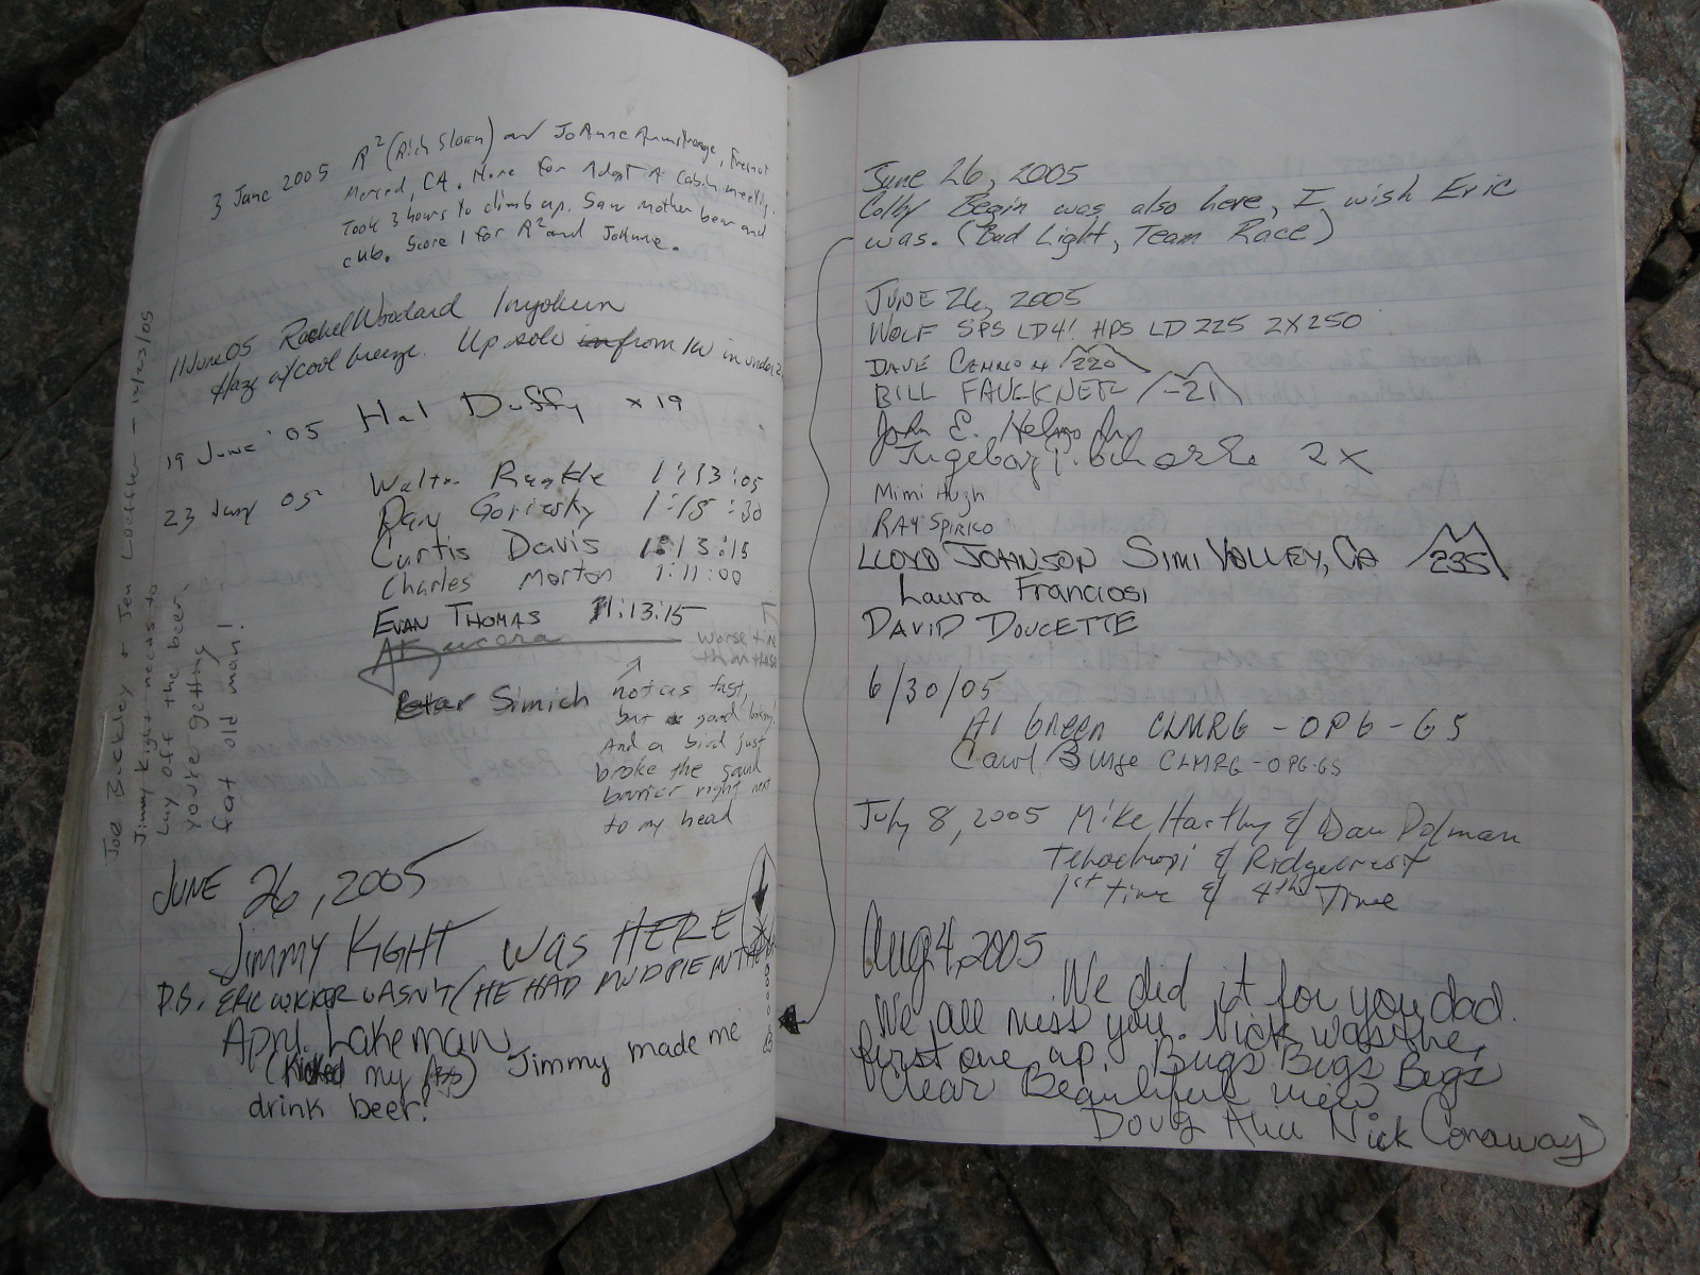 3 June 2005 R² (Rich Sloan) and JoAnne Armstrong,
Merced, CA. Here for Adopt A Cabin
Took 3 hours to climb up. Saw mother bear and
cub. Score 1 for R² and JoAnne.
11 June 05 Rachel Woodard Inyokern
Haze w/cool breeze. Up solo from in under 2
19 June '05 Hal Duffy x 19
23 05 Walter 1:13:05
Gary 1:15:30
Curtis Davis 1:13:15
Charles Morton 1:11:00
EVAN THOMAS 11:13:15
worse time
than those
Simich
not as fast,
but good looking!
And a bird just
broke the sound
barrier right next
to my head
Joe Buckley + Jen Loeffler - 12/23/05
Jimmy Kight needs to
Lay off the beer,
you're getting
fat old man!
JUNE 26, 2005
JIMMY KIGHT WAS HERE
P.S. ERIC WASN'T (HE HAD MUD PIE IN THE
April Lakeman
(Kicked my ass) Jimmy made me
drink beer!
June 26, 2005
Colby Begin was also here, I wish Eric
was. (Bud Light, Team Race)
JUNE 26, 2005
WOLF SPS LD4! HPS LD 225 2X250
DAVE CANNON 220
BILL FAULKNER -21
John E. Helms Jr.
Ingeborg 2X
Mimi Hugh
RAY SPIRKO
LLOYD JOHNSON SIMI VALLEY, CA 235
Laura Franciosi
DAVID DOUCETTE
6/30/05
Al Green CLMRG - OPG - GS
Carol Burge CLMRG - OPG-GS
July 8, 2005 Mike Hartley & Dan Dolman
Tehachapi & Ridgecrest
1st time & 4th Time
Aug 4, 2005
We did it for you dad.
We all miss you. Nick was the
first one up. Bugs Bugs Bugs
Clear Beautiful view
Doug Alice Nick Conaway